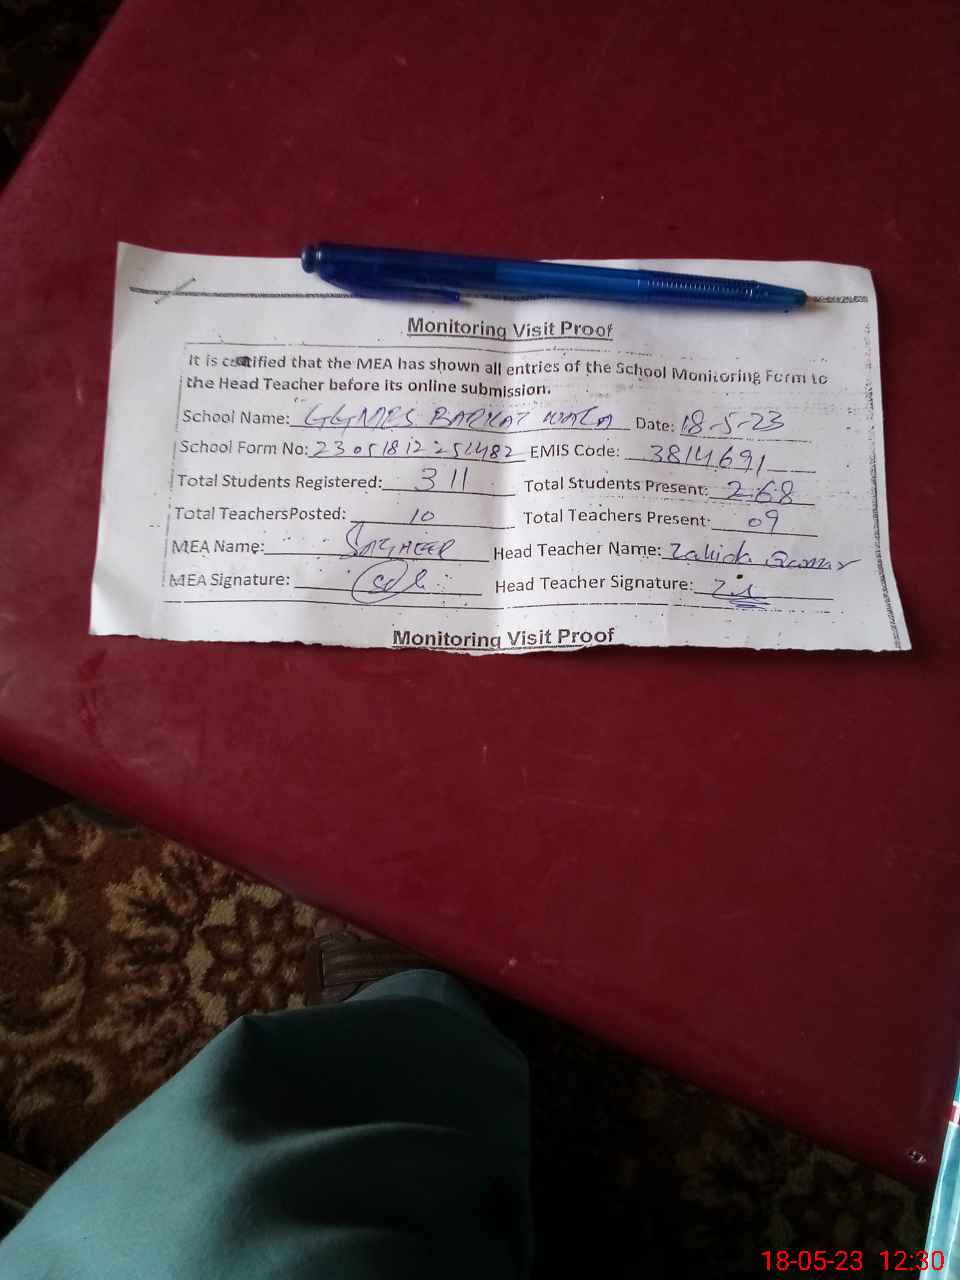 Monitoring Visit Proof
It is certified that the MEA has shown all entries of the School Monitoring Form to
the Head Teacher before its online submission.
School Name: GGMPS BARKAT WALA Date: 18-5-23
School Form No: 23051812251482 EMIS Code: 3814691
Total Students Registered: 311 Total Students Present: 268
Total TeachersPosted: 10 Total Teachers Present: 09
MEA Name: SAGHEER Head Teacher Name: Zahida
MEA Signature: Head Teacher Signature:
Monitoring Visit Proof
18-05-23 12:30